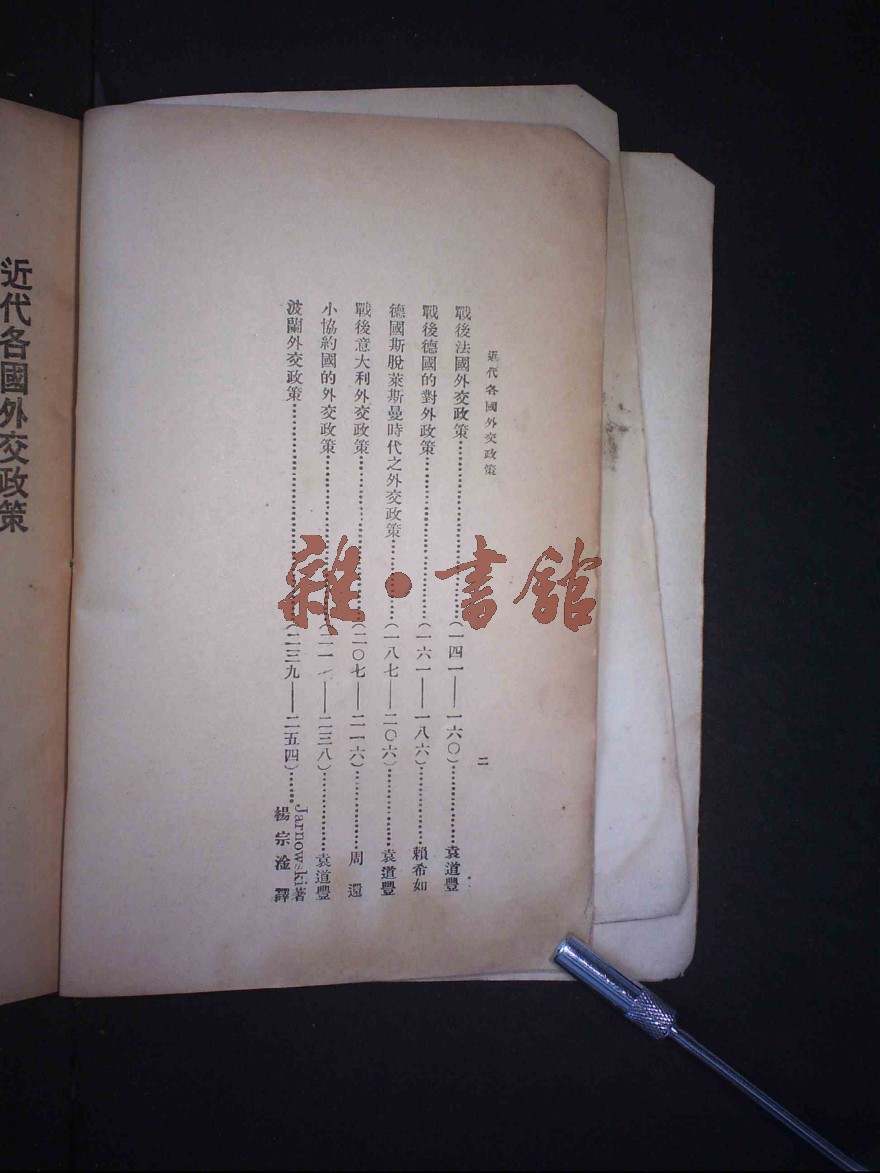 近代各國外交政策
二
戰後法國外交政策……………………(一四一——一六〇)……………袁道豐
戰後德國的對外政策……………………(一六一——一八六)……………賴希如
德國斯脫萊斯曼時代之外交政策…………(一八七——二〇六)……………袁道豐
戰後意大利外交政策……………………(二〇七——二一六)……………周還
小協約國的外交政策……………………(二一七——二三八)……………袁道豐
波蘭外交政策…………………………(二三九——二五四)……Jarnowski著
楊宗淦譯
近代各國外交政策
雜·書館